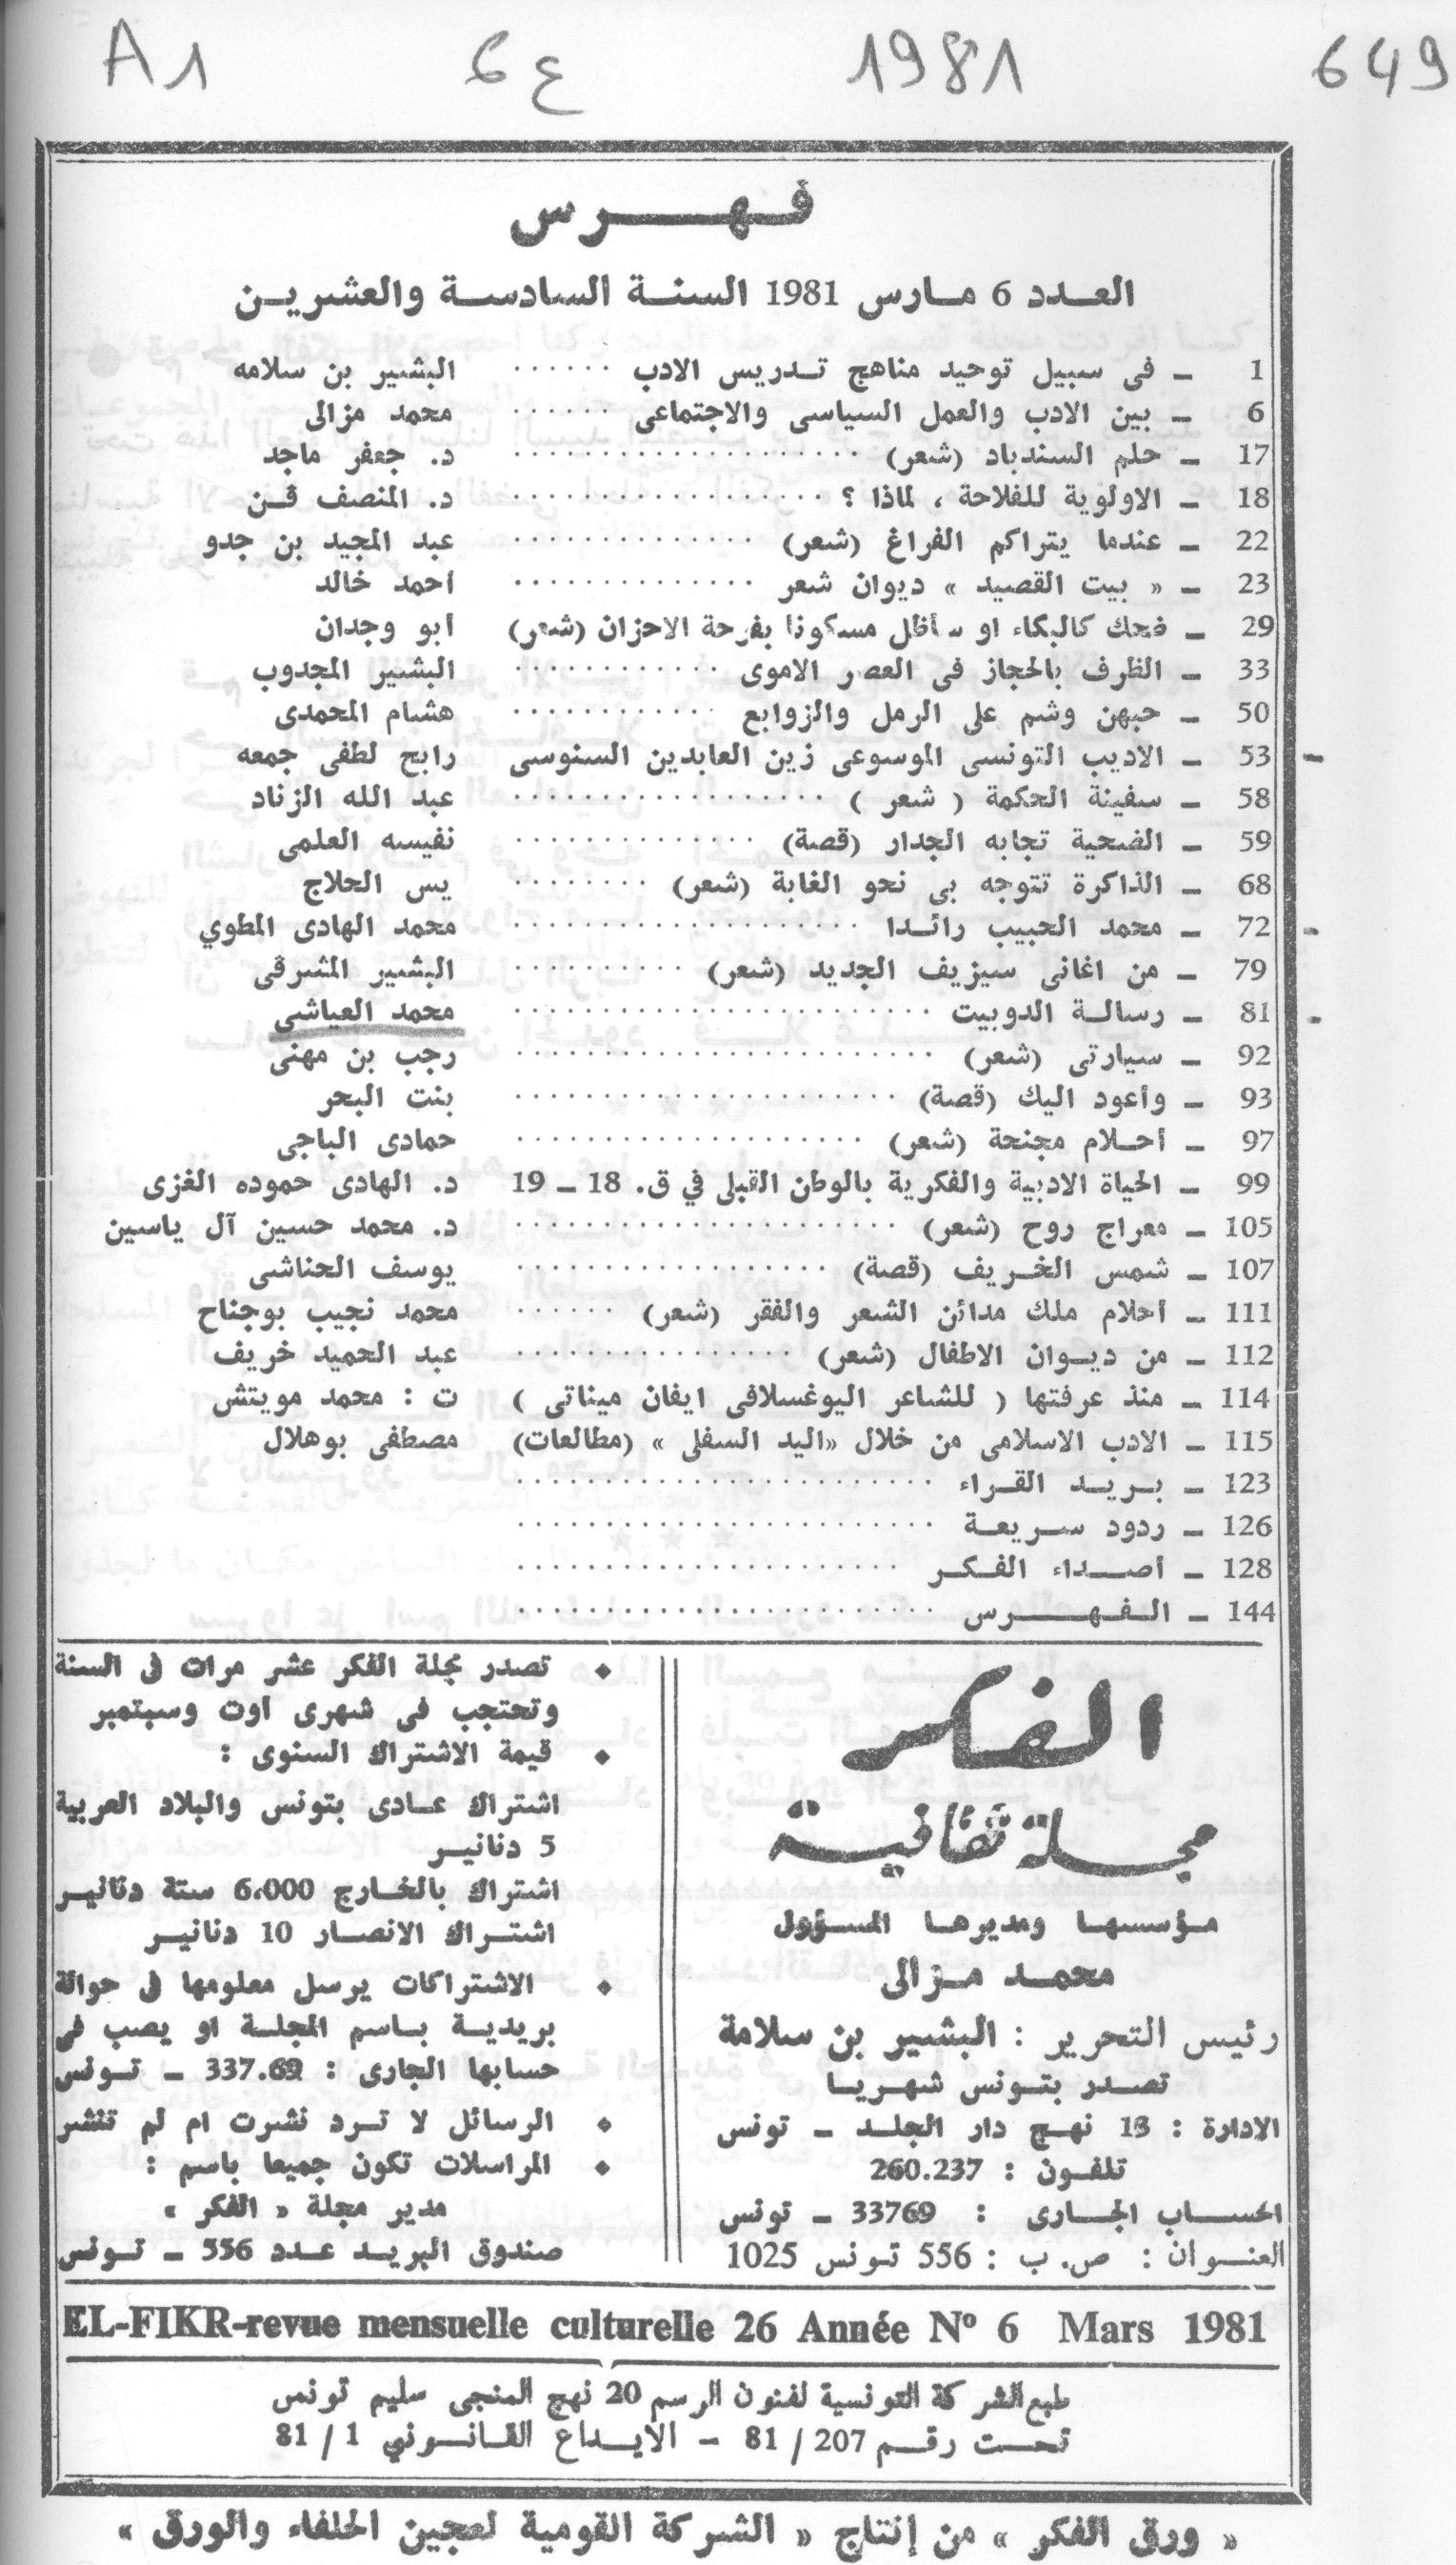 A1 6ع 1981 649
فهرس
العدد 6 مارس 1981 السنة السادسة والعشرين
1 ـ فى سبيل توحيد مناهج تدريس الادب ...... البشير بن سلامه
6 ـ بين الادب والعمل السياسى والاجتماعى ...... محمد مزالى
17 ـ حلم السندباد (شعر) .................... د. جعفر ماجد
18 ـ الاولوية للفلاحة ، لماذا ؟ .................. د. المنصف ڨن
22 ـ عندما يتراكم الفراغ (شعر) ............... عبد المجيد بن جدو
23 ـ « بيت القصيد » ديوان شعر .............. احمد خالد
29 ـ ضحك كالبكاء او سأظل مسكونا بفرحة الاحزان (شعر) أبو وجدان
33 ـ الظرف بالحجاز فى العصر الاموى ............ البشير المجدوب
50 ـ حبهن وشم على الرمل والزوابع ............ هشام المحمدى
53 ـ الاديب التونسى الموسوعى زين العابدين السنوسى رابح لطفى جمعه
58 ـ سفينة الحكمة ( شعر ) .................. عبد الله الزناد
59 ـ الضحية تجابه الجدار (قصة) .............. نفيسه العلمى
68 ـ الذاكرة تتوجه بى نحو الغابة (شعر) ........ يس الحلاج
72 ـ محمد الحبيب رائدا .................... محمد الهادى المطوي
79 ـ من اغانى سيزيف الجديد (شعر) .......... البشير المشرقى
81 ـ رسالة الدوبيت ........................ محمد العياشى
92 ـ سيارتى (شعر) ........................ رجب بن مهنى
93 ـ وأعود اليك (قصة) ...................... بنت البحر
97 ـ أحلام مجنحة (شعر) .................... حمادى الباجى
99 ـ الحياة الادبية والفكرية بالوطن القبلى في ق. 18 ـ 19 د. الهادى حموده الغزى
105 ـ معراج روح (شعر) ...................... د. محمد حسين آل ياسين
107 ـ شمس الخريف (قصة) .................. يوسف الحناشى
111 ـ أحلام ملك مدائن الشعر والفقر (شعر) ...... محمد نجيب بوجناح
112 ـ من ديوان الاطفال (شعر) ................ عبد الحميد خريف
114 ـ منذ عرفتها ( للشاعر اليوغسلافى ايفان ميناتى ) ت : محمد مويتش
115 ـ الادب الاسلامى من خلال «اليد السفلى » (مطالعات) مصطفى بوهلال
123 ـ بريد القراء ........................
126 ـ ردود سريعة ........................
128 ـ أصداء الفكر ......................
144 ـ الفهرس ........................
الفكر
مجلة ثقافية
مؤسسها ومديرها المسؤول
محمد مزالى
رئيس التحرير : البشير بن سلامة
تصدر بتونس شهريا
الادارة : 13 نهج دار الجلد ـ تونس
تلفون : 260.237
الحساب الجارى : 33769 ـ تونس
العنوان : ص. ب : 556 تونس 1025
♦ تصدر مجلة الفكر عشر مرات فى السنة
وتحتجب فى شهرى اوت وسبتمبر
♦ قيمة الاشتراك السنوى :
اشتراك عادى بتونس والبلاد العربية
5 دنانير
اشتراك بالخارج 6،000 ستة دنانير
اشتراك الانصار 10 دنانير
♦ الاشتراكات يرسل معلومها فى حوالة
بريدية باسم المجلة او يصب فى
حسابها الجارى : 337.69 ـ تونس
♦ الرسائل لا ترد نشرت ام لم تنشر
♦ المراسلات تكون جميعا باسم :
مدير مجلة « الفكر »
صندوق البريد عدد 556 ـ تونس
EL-FIKR-revue mensuelle culturelle 26 Année N° 6 Mars 1981
طبع الشركة التونسية لفنون الرسم 20 نهج المنجى سليم تونس
تحت رقم 207 / 81 - الايداع القانوني 1 / 81
« ورق الفكر » من إنتاج « الشركة القومية لعجين الحلفاء والورق »